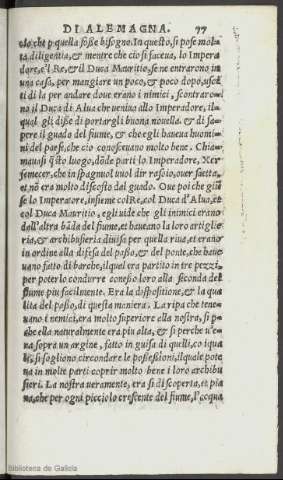 DI ALEMAGNA. 77
olo, che p quella fosse bisogno. In questo, si pose mol-
ta, diligentia, & mentre che cio si faceua, lo Impera
dore, e'l Re, & il Duca Mauritio, se ne entrarono in
una casa, per mangiare un poco, & poco dopo, usci
ti di la per andare doue erano i nimici, scontraro-
no il Duca di Alua che ueniua allo Imperadore, il-
qual gli disse di portargli buona nouella, & di sa-
pere il guado del fiume, & che egli haueua huomi
ni del paese, che cio conosceuano molto bene. Chia-
mauasi q̃sto luogo, dõde parti lo Imperadore, Xer
femecer, che in spagnuol uuol dir rasoio, ouer saetta,
et nõ era molto discosto dal guado. Oue poi che giũ
se lo Imperatore, insieme col Re, col Duca d'Alua, et
col Duca Mauritio, egli uide che gli inimici erano
dall'altra bãda del fiume, et haueano la loro artiglie
ria, & archibusieria diuisa per quella riua, et erano
in ordine alla difesa del passo, & del ponte, che haue
uano fatto di barche, il quale era partito in tre pezzi,
per poterlo condurre con esso loro alla seconda del
fiume piu facilmente. Era la dispositione, & la qua
lita del passo, di questa maniera. La ripa che tene-
uano i nemici, era molto superiore alla nostra, si p-
che ella naturalmente era piu alta, & si perche u'e-
ra sopra un argine, fatto in guisa di quelli, co iqua
li, si sogliono circondare le possessioni, ilquale pote
ua in molte parti coprir molto bene i loro archibu
sieri. La nostra ueramente, era si discoperta, et pia
na, che per ogni picciolo crescente del fiume, l'acqua
Biblioteca de Galicia